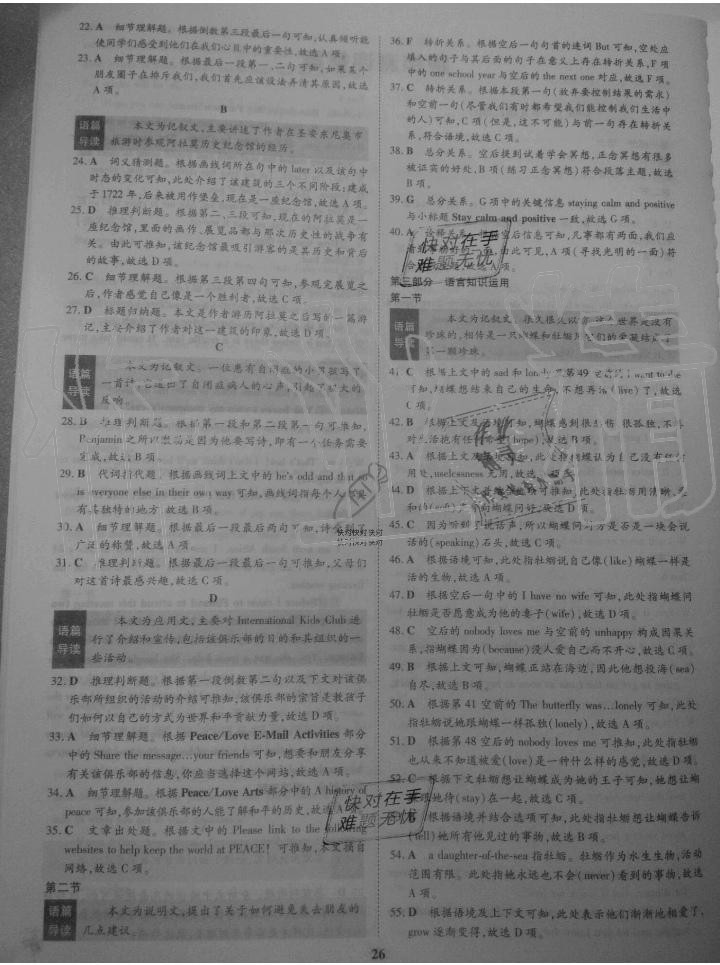 22. A 细节理解题。根据倒数第三段最后一句可知,认真倾听能
使同学们感受到他们在我们心目中的重要性,故选A项。
23. A 细节理解题。根据最后一段第一、二句可知,如果某个
朋友圈子在排斥我们,我们首先应该设法弄清其原因,故选
A项。
B
语篇导读 本文为记叙文,主要讲述了作者在圣安东尼奥市
旅游时参观阿拉莫历史纪念馆的经历。
24. A 词义猜测题。根据画线词所在句中的later以及该句中
时态的变化可知,此处介绍了该建筑的三个不同阶段:建成
于1722年,后来被用作堡垒,现在是一座纪念馆,故选A项。
25. D 推理判断题。根据第二、三段可知,现在的阿拉莫是一
座纪念馆,里面的画作、展览品都与那次历史性的战争有
关。由此可推知,该纪念馆最吸引游客的是其历史和背后
的故事,故选D项。
26. C 细节理解题。根据第三段第四句可知,参观完展览之
后,作者感觉自己像是一个胜利者,故选C项。
27. D 标题归纳题。本文是作者游历阿拉莫之后写的一篇游
记,主要介绍了作者对这一建筑的印象,故选D项。
C
语篇导读 本文为记叙文。一位患有自闭症的小男孩写了
一首诗,它道出了自闭症病人的心声,引起了极大的
反响。
28. B 推理判断题。根据第一段和第二段第一句可推知,
Benjamin之所以激动是因为他要写诗,即有一个任务需要
完成,故选B项。
29. B 代词指代题。根据画线词上文中的he's odd and that
is everyone else in their own way可知,画线词指每个人都
有其独特的地方,故选B项。
30. A 细节理解题。根据最后一段最后两句可知,诗受到了
广泛的称赞,故选A项。
31. C 推理判断题。根据最后一段最后一句可推知,父母们
对这首诗最感兴趣,故选C项。
D
语篇导读 本文为应用文,主要对International Kids Club进
行了介绍和宣传,包括该俱乐部的目的和其组织的一
些活动。
32. D 推理判断题。根据第一段倒数第二句以及下文对该俱
乐部所组织的活动的介绍可推知,该俱乐部的宗旨是教孩子
们如何以自己的方式为世界和平贡献力量,故选D项。
33. A 细节理解题。根据Peace/Love E-Mail Activities部分
中的Share the message…your friends可知,想要和朋友分享
有关该俱乐部的信息,你应当选择这个网站,故选A项。
34. A 细节理解题。根据Peace/Love Arts部分中的A history of
peace可知,参加该俱乐部的人能了解和平的历史,故选A
35. C 文章出处题。根据文中的Please link to the following
websites to help keep the world at PEACE!可推知,本文摘自
网络,故选C项。
第二节
语篇导读 本文为说明文,提出了关于如何避免失去朋友的
几点建议。
36. F 转折关系。根据空后一句句首的连词But可知,空处应
填入的句子与其后面的句子在意义上存在转折关系,F项
中的one school year与空后的the next one对应,故选F项。
37. C 转折关系。根据本段第一句(放弃要控制结果的需求)
和空前一句(尽管我们有时都希望我们能控制我们生活中
的人)可知,C项(但是,这不可能)与前一句存在转折关
系,符合语境,故选C项。
38. B 总分关系。空后提到试着学会冥想,正念冥想有很多
被证实的好处,B项(练习正念冥想)符合段落主题,故选
B项。
39. G 总分关系。G项中的关键信息staying calm and positive
与小标题Stay calm and positive一致,故选G项。
40. A 诠释关系。空后信息可知,凡事都有两面,我们应
由此可见,A项(寻找光明的一面)符
第三部分 语言知识运用
第一节
语篇导读 本文为记叙文。很久很久以前,这个世界是没有
珍珠的,相传是一只蝴蝶和牡蛎,它们的爱凝结成了第
一颗珍珠。
41. C 根据上文中的sad and lonely及第49空后的I want to die
可知,蝴蝶想结束自己的生命,不想再活(live)了,故选
C项。
42. B 根据上文及语境可知,蝴蝶感到很悲伤、很孤独,不
对生活抱有任何希望(hope),故选B项。
43. A 根据上文及语境可知,此处指蝴蝶认为自己没有任何
用处,uselessness无用,故选A项。
44. D 根据上下文及语境可推知,此处指牡蛎用清晰、柔
和的(soft)声音向蝴蝶问好,故选D项。
45. C 因为听到了说话声,所以蝴蝶问对方是否是一块会说
话的(speaking)石头,故选C项。
46. A 根据语境可知,此处指牡蛎说自己像(like)蝴蝶一样是
活的生物,故选A项。
47. D 根据空后一句中的I have no wife可知,此处指蝴蝶问
牡蛎是否愿意成为他的妻子(wife),故选D项。
48. C 空后的nobody loves me与空前的unhappy构成因果关
系,指蝴蝶因为(because)没人爱自己而不开心,故选C项。
49. B 根据上文可知,蝴蝶正站在海边,因此他想投海(sea)
自尽,故选B项。
50. A 根据第41空前的The butterfly was…lonely可知,此处
指牡蛎说她跟蝴蝶一样孤独(lonely),故选A项。
51. D 根据第48空后的nobody loves me可推知,此处指牡蛎
也从来不知道被爱(love)是一种什么样的感觉,故选D项。
52. C 根据下文牡蛎想让蝴蝶成为他的王子可知,她想让蝴
蝶跟她待(stay)在一起,故选C项。
根据语境并结合选项可知,此处指牡蛎想让蝴蝶告诉
(tell)她所有他见过的事物,故选B项。
54. A a daughter-of-the-sea指牡蛎。牡蛎作为水生生物,活动
范围有限。此处指她永远也不会(never)看到的事物,故选
A项。
55. D 根据语境及上下文可知,此处表示他们渐渐地相爱了,
grow逐渐变得,故选D项。
快对在手
难题无忧
快对在手
难题无忧
26